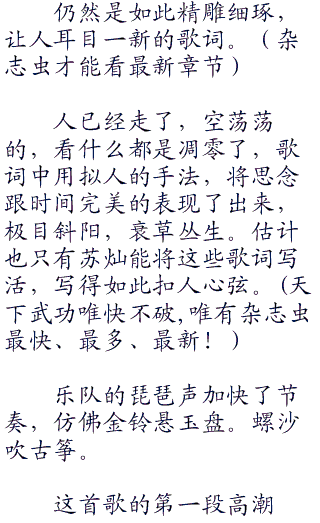 仍然是如此精雕细琢，
让人耳目一新的歌词。（杂
志虫才能看最新章节）
人已经走了，空荡荡
的，看什么都是凋零了，歌
词中用拟人的手法，将思念
跟时间完美的表现了出来，
极目斜阳，衰草丛生。估计
也只有苏灿能将这些歌词写
活，写得如此扣人心弦。（天
下武功唯快不破,唯有杂志虫
最快、最多、最新！）
乐队的琵琶声加快了节
奏，仿佛金铃悬玉盘。螺沙
吹古筝。
这首歌的第一段高潮